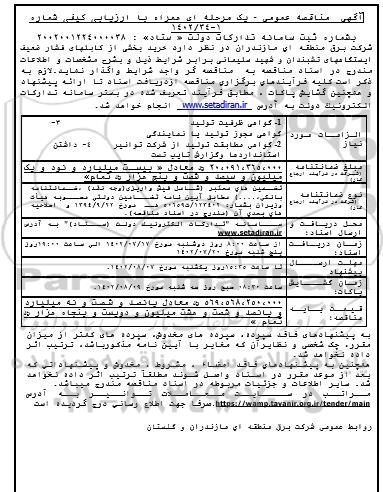 آگهی مناقصه عمومی - یک مرحله ای همراه با ارزیابی کیفی شماره
۱۴۰۲/۳۴-۱
بشماره ثبت سامانه تدارکات دولت « ستاد» : ۲۰۰۲۰۰۱۲۲۴۰۰۰۰۳۸
شرکت برق منطقه ای مازندران در نظر دارد خرید بخشی از کابلهای فشار ضعیف
ایستگاههای تشبندان و شهید سلیمانی برابر شرایط ذیل و بشرح مشخصات و اطلاعات
مندرج در اسناد مناقصه به مناقصه گر واجد شرایط واگذار نماید.لازم به
ذکر است کلیه فرآیندهای برگزاری مناقصه ازدریافت اسناد تا ارائه پیشنهاد
و همچنین گشایش پاکات ، مطابق فرآیند تعریف شده در بستر سامانه تدارکات
الکترونیک دولت به آدرس www.setadiran.ir انجام خواهد شد.
الزامات مورد نیاز
1- گواهی ظرفیت تولید
۲- گواهی مجوز تولید یا نمایندگی
۳- گواهی مطابقت تولید از شرکت توانیر ۴- داشتن
استانداردها وگزارش تایپ تست
مبلغ ضمانتنامه
۲۰،۰۹۱،۳۶۵،۰۰۰ معادل « بیست میلیارد و نود و یک
میلیون و سیصد و شصت و پنج هزار تمام»
نوع ضمانتنامه
تضمین های معتبر (شامل فیش واریزی(وجه نقد) ،ضمانتنامه
بانکی،.....) مطابق آیین نامه تضامین دولتی مصوبه هیأت
وزیران بشماره مورخ ۱۳۹۴/۹/۲۲ و اصلاحیه
های بعدی آن (مندرج در اسناد مناقصه).
محل دریافت و ارسال اسناد:
سامانه "تدارکات الکترونیک دولت (ستاد)" به آدرس
www.setadiran.ir
زمان دریافت اسناد:
از ساعت ۸:۰۰ روز دوشنبه مورخ ۱۴۰۲/۰۷/۱۷ الی ساعت ۱۹:۰۰روز
پنج شنبه مورخ ۱۴۰۲/۰۷/۲۰
مهلت ارسال پیشنهاد
تا ساعت ۱۵:۲۵روز یکشنبه مورخ ۱۴۰۲/۰۸/۰۷
زمان گشایش پاکات:
ساعت ۰۸:۳۰ صبح روز سه شنبه مورخ ۱۴۰۲/۰۸/۰۹
قیمت پایه مناقصه:
۵۶۹،۵۶۸،۲۵۰،۰۰۰ معادل پانصد و شصت و نه میلیارد
و پانصد و شصت و هشت میلیون و دویست و پنجاه هزار
تمام
به پیشنهادهای فاقد سپرده، سپرده های مخدوش، سپرده های کمتر از میزان
مقرر، چک شخصی و نظایرآن که مغایر با آیین نامه مذکورباشد، ترتیب اثر
داده نخواهد شد.
همچنین به پیشنهادهای فاقد امضاء ، مشروط ، مخدوش و پیشنهاداتی که
بعد از موعد مقرر در اسناد واصل شوند مطلقاً ترتیب اثر داده نخواهد
شد. سایر اطلاعات و جزئیات مربوطه در اسناد مناقصه مندرج میباشد.
مراتب در سایت معاملات توانیر به آدرس
https://wamp.tavanir.org.ir/tender/main.صرفا جهت اطلاع رسانی درج گردیده است
روابط عمومی شرکت برق منطقه ای مازندران و گلستان